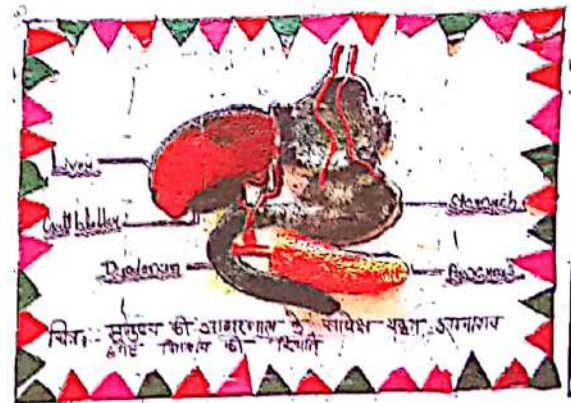 Liver
Gall bladder
Duodenum
Stomach
Pancreas
चित्र:- मनुष्य की आहारनाल के सापेक्ष यकृत, अग्नाशय
की स्थिति